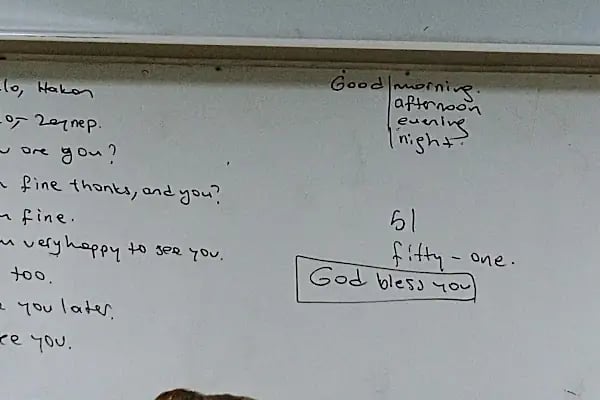 lo, Hakan
o, Zeynep.
are you?
fine thanks, and you?
fine.
very happy to see you.
too.
you later.
ee you.
Good morning.
afternoon
evening
night.
51
fifty-one.
God bless you